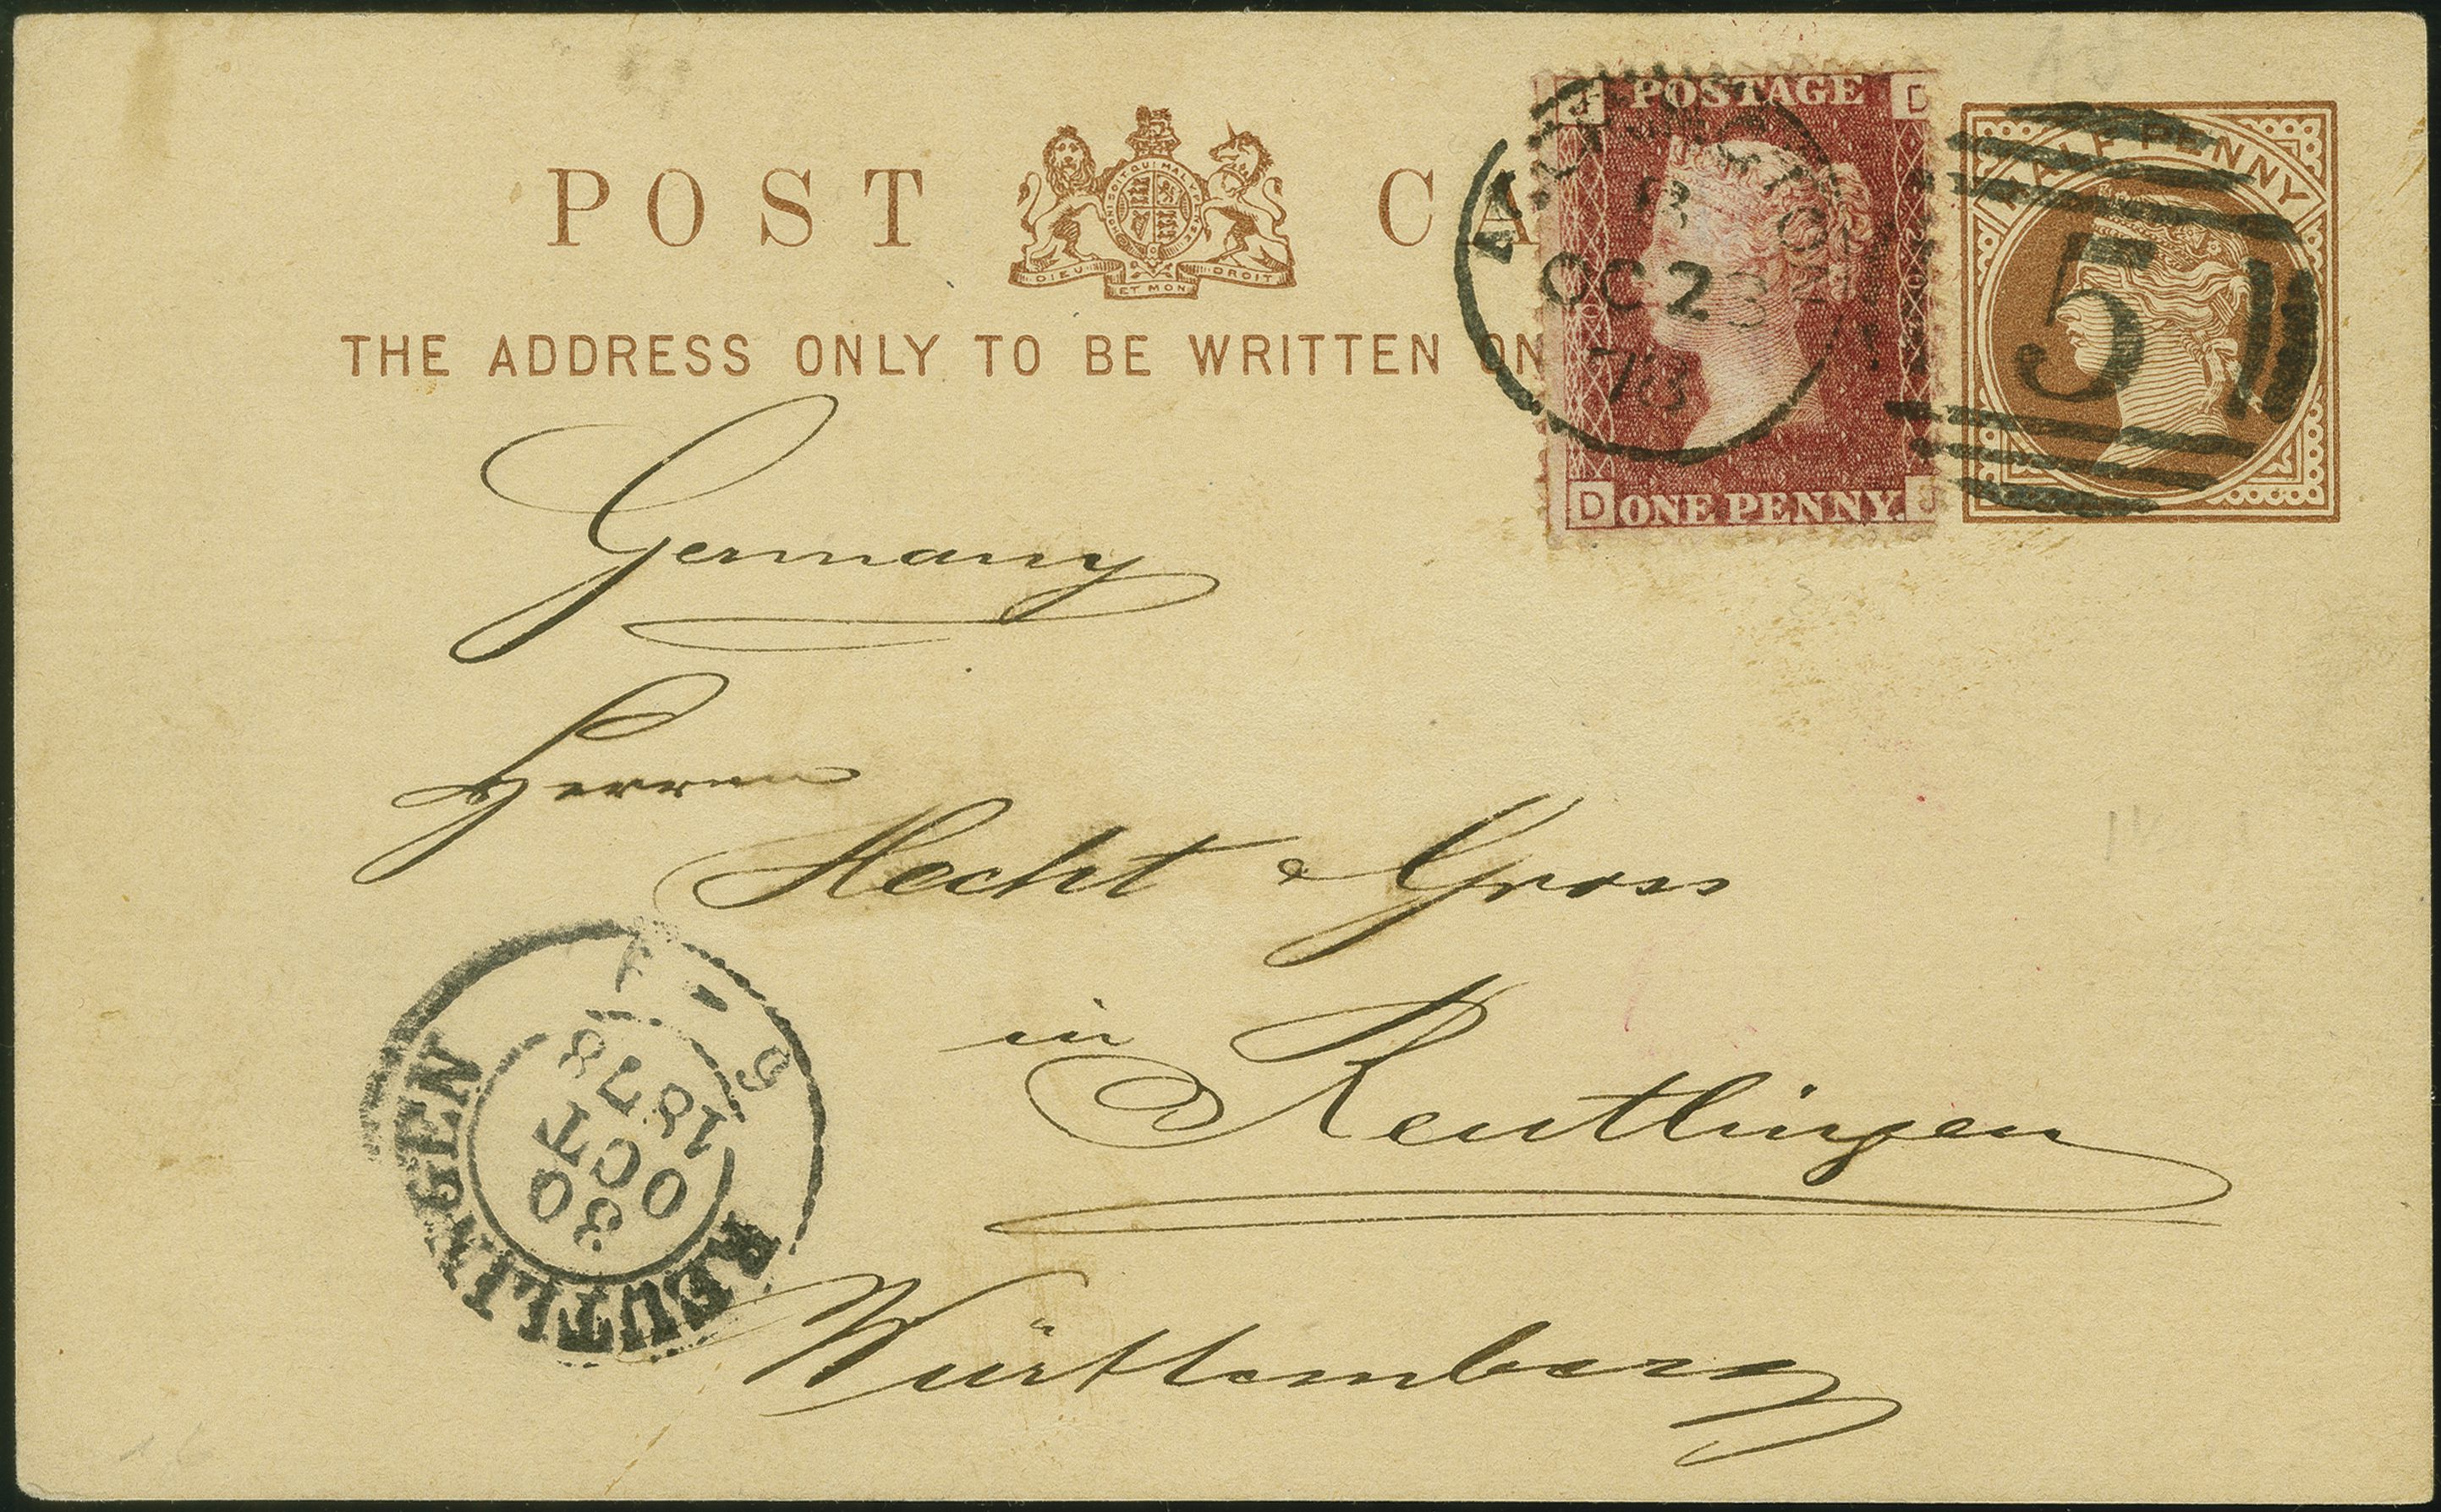 POST CA
HONI SOIT QUI MAL Y PENSE
DIEU ET MON DROIT
THE ADDRESS ONLY TO BE WRITTEN ON
POSTAGE
D
D ONE PENNY. J
HALF PENNY
B
OC 28
78
5
Germany
Herren
Hecht & Gross
in Reutlingen
Württemberg
REUTLINGEN
30
OCT
1878